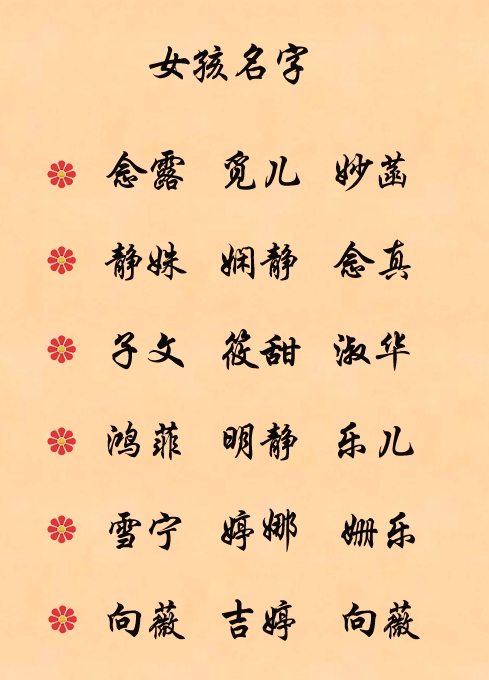 女孩名字
念露 觅儿 妙菡
静姝 娴静 念真
子文 筱甜 淑华
鸿菲 明静 乐儿
雪宁 婷娜 姗乐
向薇 吉婷 向薇